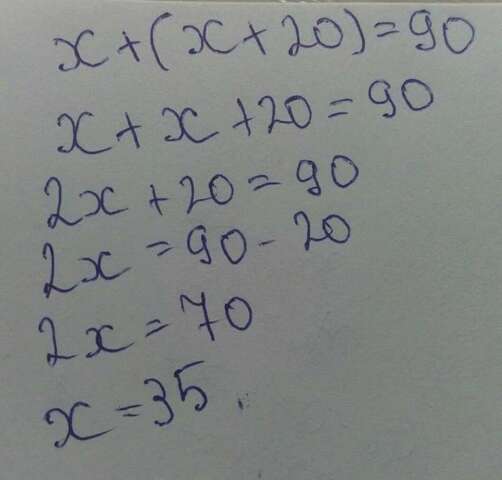 x+(x+20)=90
x+x+20=90
2x+20=90
2x=90-20
2x=70
x=35.